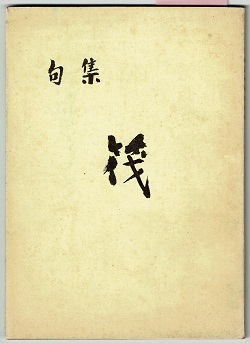 句集
筏